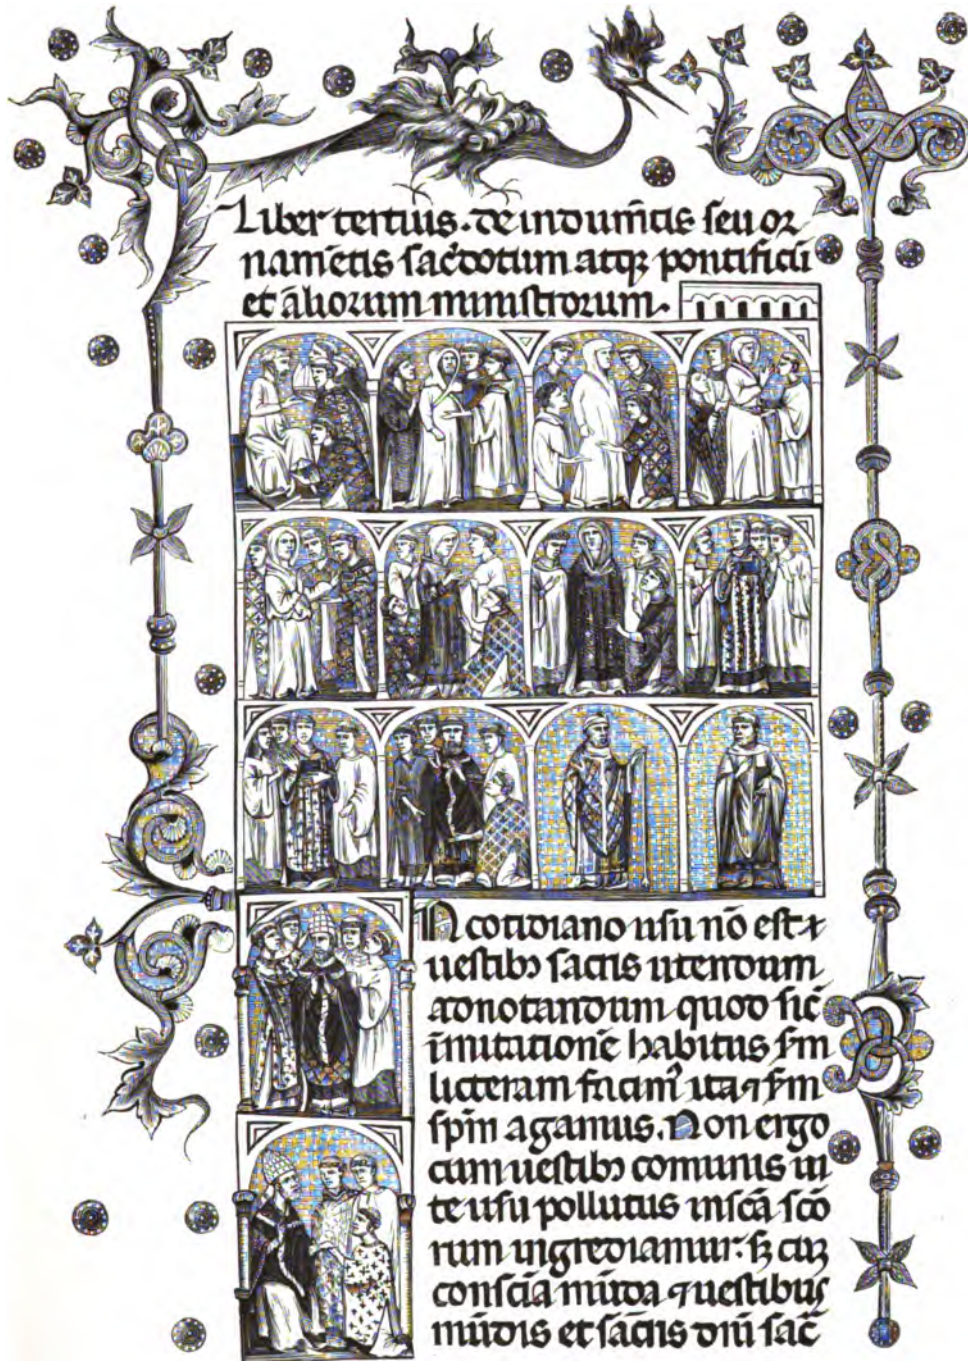 Liber tertius. de indum̄tis seu or
nam̄etis sac̄dotum atqꝫ pontificū
et āliorum ministrorum.
N cotidiano usu nō est
uestibꝰ sacris utendum
adnotandum quod sic̄
īmutationē habitus
licteram facim᷒ ita
agamus. Non ergo
cum uestibꝰ comunis ui
te usu pollutus in sc̄a sc̄o
rum ingrediamur. sꝫ cuꝫ
consc̄ia mūda uestibus
mūdis et sacris dn̄i sac̄